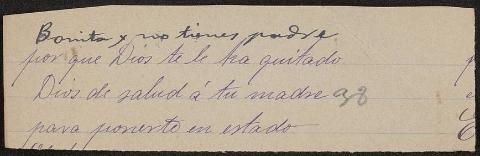 Bonita y no tienes padre
por que Dios te le ha quitado
Dios de salud á tu madre
para ponerte en estado